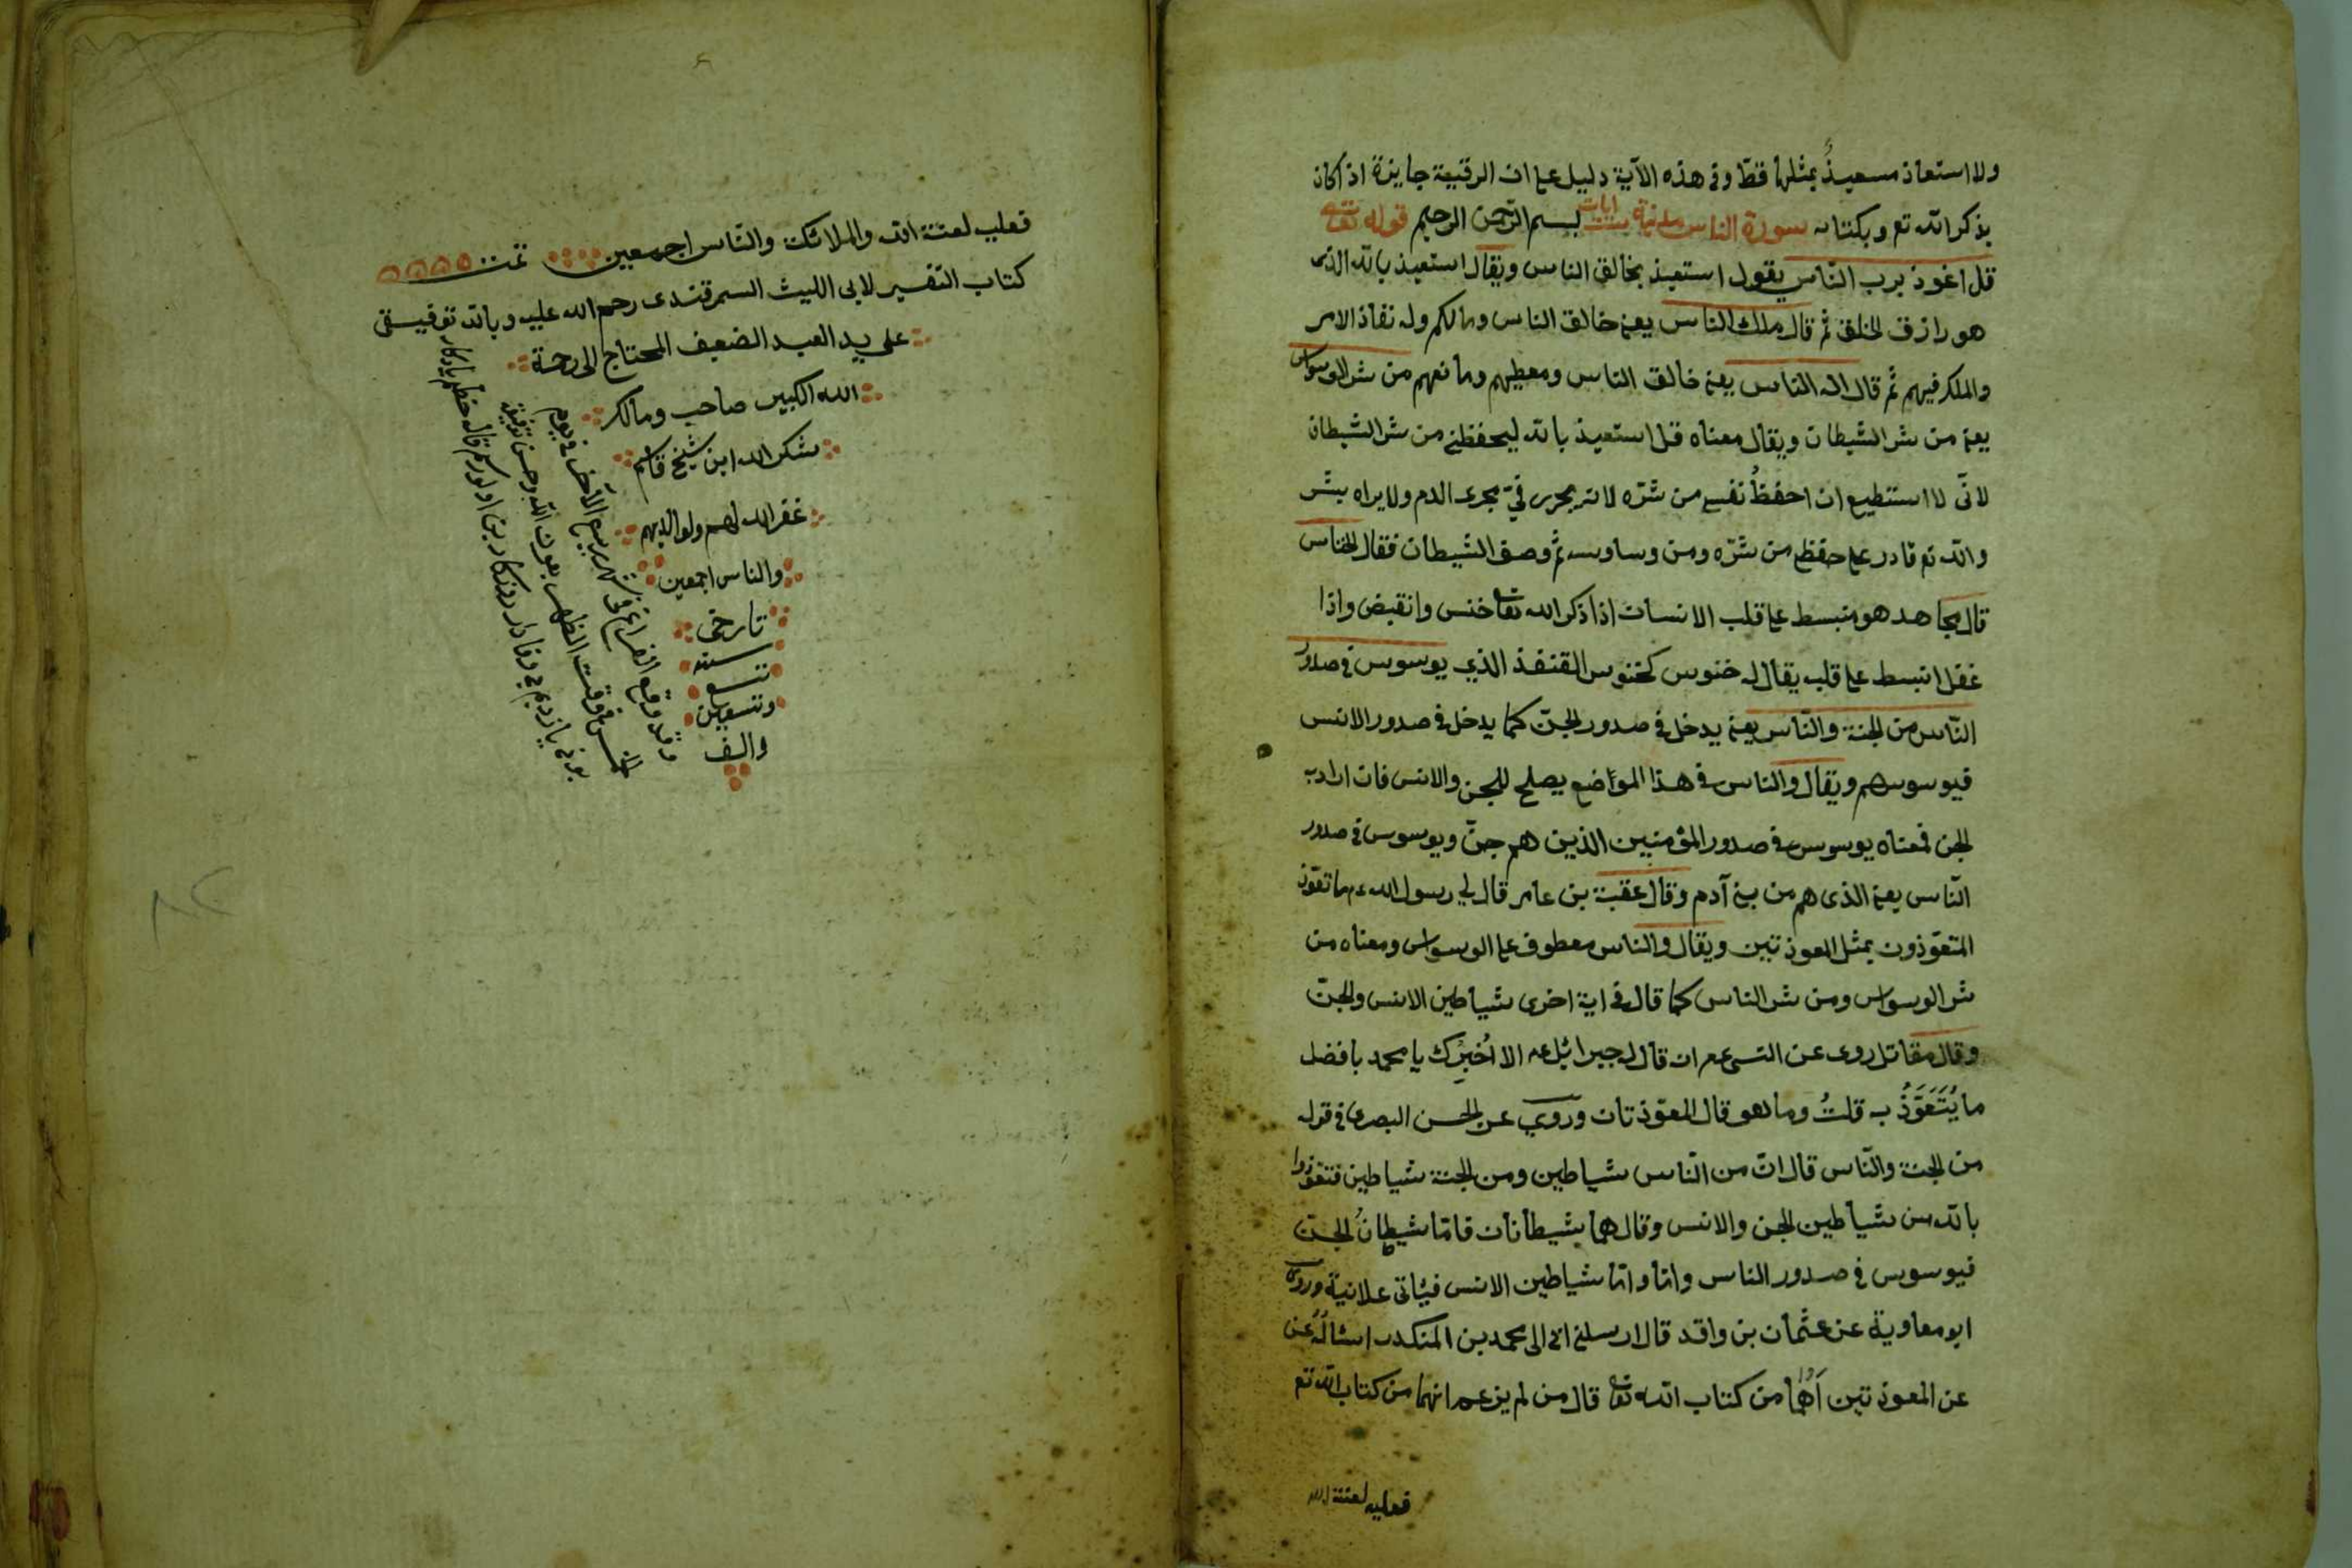 ولا استعاذ مستعيذٌ بمثلها قطّ وفى هذه الآية دليل على ان الرقية جايزة اذ اكان
بذكر الله تع وبكتابه سورة الناس مدنية ست ايات بسم الله الرحمن الرحيم قوله تعالى
قل اعوذ برب النّاس يقول استعيذ بخالق الناس ويقال استعيذ بالله الذى
هو رازق الخلق ثم قال ملك الناس يعنى خالق الناس ومالكهم وله نفاذ الامر
والملك فيهم ثم قال اله الناس يعنى خالق الناس ومعطيهم ومانعهم من شر الوسواس
يعنى من شر الشيطان ويقال معناه قل استعيذ بالله ليحفظنى من شر الشيطان
لانّى لا استطيع ان احفظُ نفسى من شرّه لانه يجرى فىّ مجرى الدم ولا يراه بشر
والله تع قادر على حفظى من شرّه ومن وساوسه ثم وصف الشيطان فقال الخناس
قال مجاهد هو منبسط على قلب الانسان اذا ذكر الله تعا خنس وانقبض واذا
غفل انبسط على قلبه يقال له خنوس كخنوس القنفذ الذى يوسوس فى صدور
النّاس من الجنة والنّاس يعنى يدخل فى صدور الجنّ كما يدخل فى صدور الانس
فيوسوسهم ويقال والناس فى هذا المواضع يصلح للجن والانس فان اراد به
الجن فمعناه يوسوس فى صدور المؤمنين الذين هم جنّ ويوسوس فى صدور
النّاس يعنى الذى هم من بنى آدم وقال عقبة بن عامر قال لى رسول الله عم ما تعوّذ
المتعوّذون بمثل المعوذتين ويقال والناس معطوف على الوسواس ومعناه من
شر الوسواس ومن شر الناس كما قال فى اية اخرى شياطين الانس والجنّ
وقال مقاتل روى عن النبى عم ان قال له جبرائيل عم الا اُخبِرُك يا محمد بافضل
ما يُتَعَوَّذُ به قلتُ وما هو قال المعوّذتان وروى عن الحسن البصرى فى قوله
من الجنة والنّاس قال انّ من النّاس شياطين ومن الجنة شياطين فتعوّذوا
بالله من شياطين الجن والانس وقال هما شيطانان فامّا شيطانُ الجنّ
فيوسوس فى صدور الناس وامّا وامّا شياطين الانس فيأتى علانية وروى
ابو معاوية عن عثمان بن واقد قال ارسلنى ابى الى محمد بن المنكدر اسئالُهُ عن
عن المعوذتين أَهُما من كتاب الله تعا قال من لم يزعم انهما من كتاب الله تع
فعليه لعنة الله
فعليه لعنة الله والملائكة والنّاس اجمعين تمت
كتاب التفسير لابى الليث السمرقندى رحم الله عليه وبالله توفيقى
على يد العبد الضعيف المحتاج الى رحمة
الله الكبير صاحب ومالك
شكر الله ابن شيخ قاسم
غفر الله لهم ولوالديهم
والناس اجمعين
تاريخى
سنة
تسع
وتسعين
والف
وقد وقع الفراغ فى شهر ربيع الآخر فى يوم
الخمس فى وقت الظهر بعون الله وحسن توفيقه